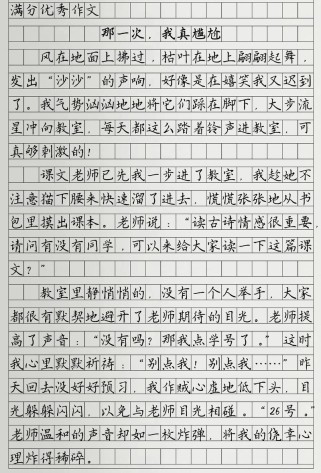 满分优秀作文
那一次，我真尴尬
风在地面上拂过，枯叶在地上翩翩起舞，
发出“沙沙”的声响，好像是在嬉笑我又迟到
了。我气势汹汹地地将它们踩在脚下，大步流
星冲向教室，每天都这么踏着铃声进教室，可
真够刺激的！
课文老师已先我一步进了教室，我趁她不
注意猫下腰来快速溜了进去，慌慌张张地从书
包里摸出课本。老师说：“读古诗情感很重要，
请问有没有同学，可以来给大家读一下这篇课
文？”
教室里静悄悄的，没有一个人举手，大家
都很有默契地避开了老师期待的目光。老师提
高了声音：“没有吗？那我点学号了。”这时
我心里默默祈祷：“别点我！别点我……”昨
天回去没好好预习，我作贼心虚地低下头，目
光躲躲闪闪，以免与老师目光相碰。“26号。”
老师温和的声音却如一枚炸弹，将我的侥幸心
理炸得稀碎。